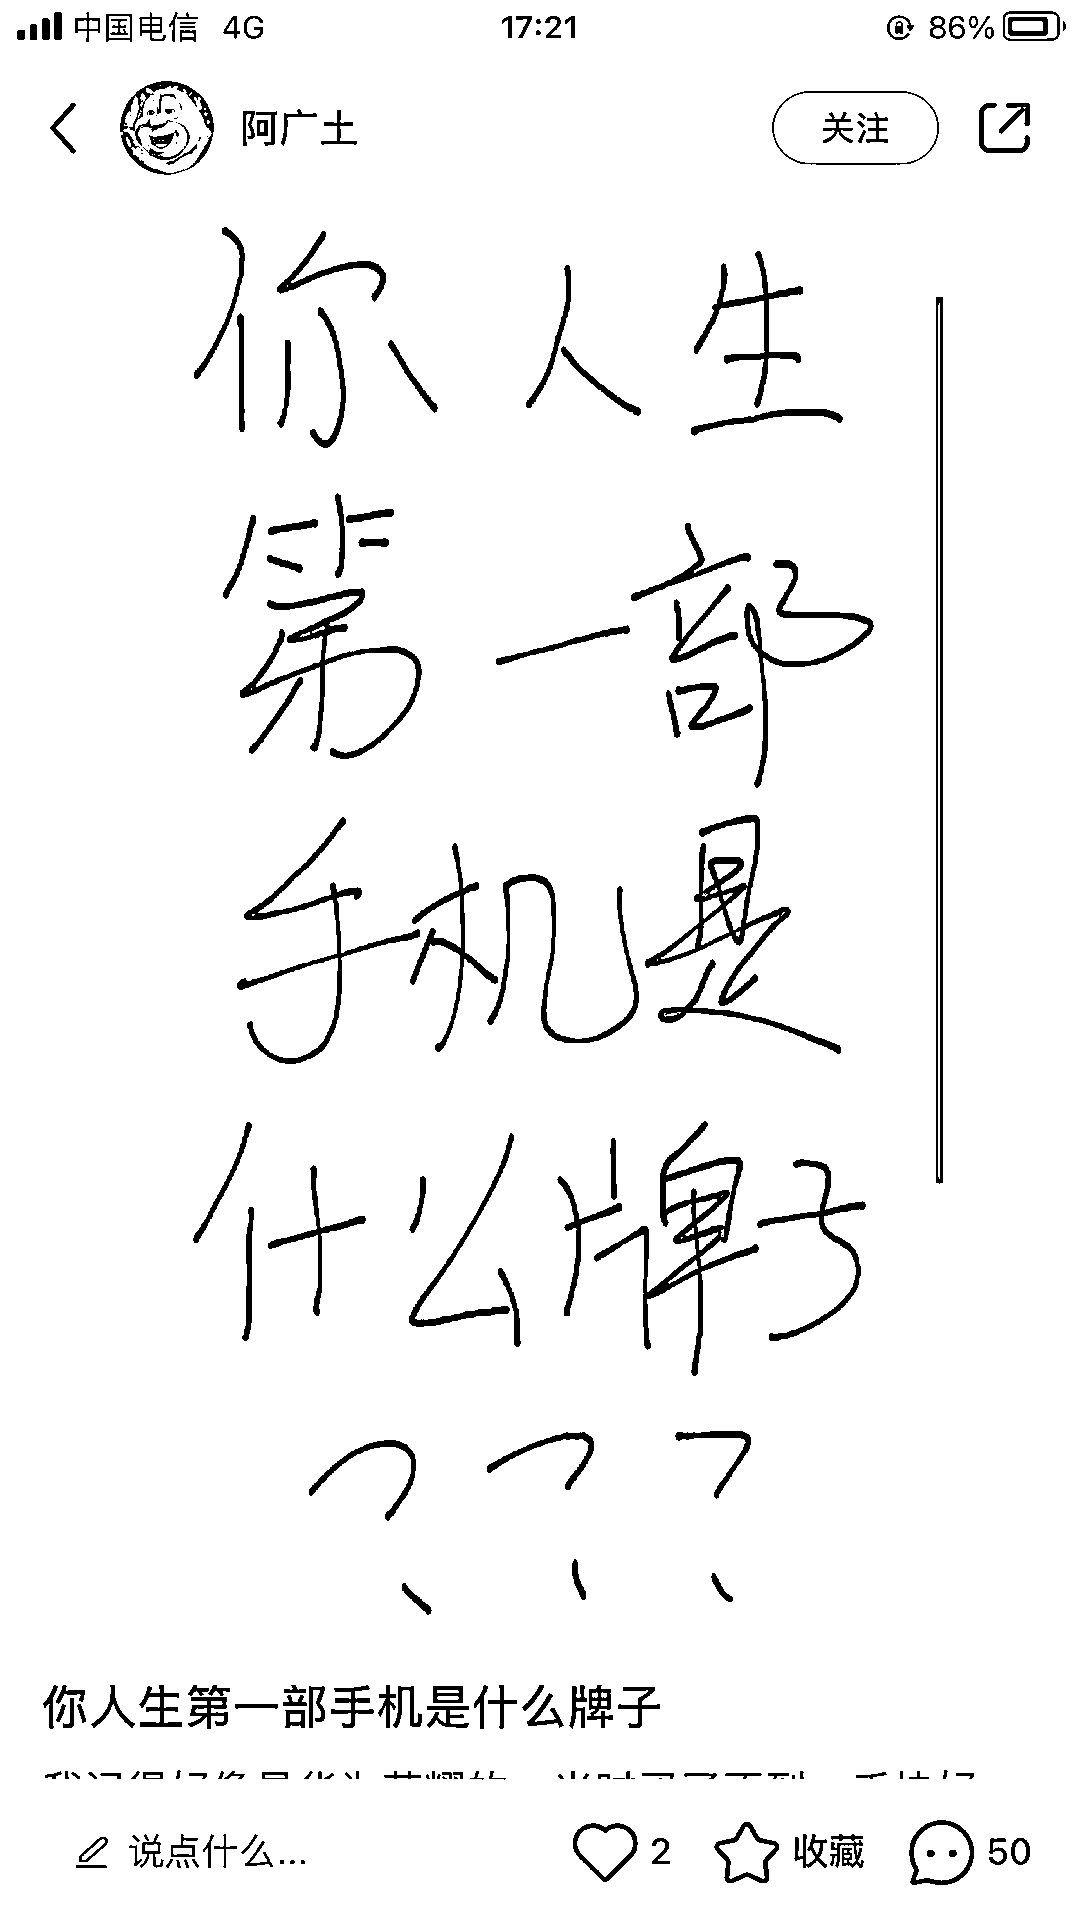 中国电信 4G 17:21 86%
阿广土 关注
你人生
第一部
手机是
什么牌子
???
你人生第一部手机是什么牌子
说点什么... 2 收藏 50